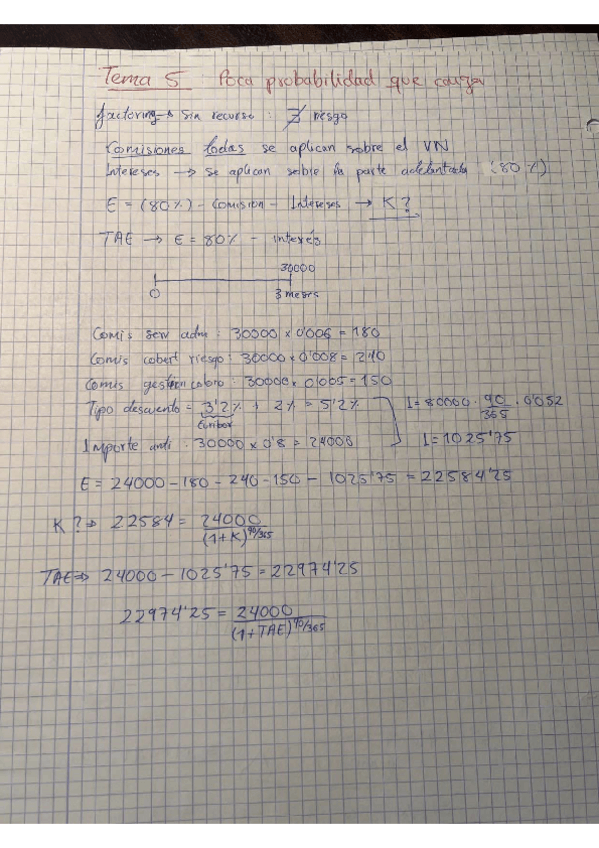 Tema 5 Poca probabilidad que caiga
factoring → sin recurso : ∄ riesgo
Comisiones todas se aplican sobre el VN
Intereses → se aplican sobre la parte adelantada (80%)
E = (80%) - Comisión - Intereses → K?
TAE → E = 80% - interés
30000
0 3 meses
Comis serv adm : 30000 x 0'006 = 180
Comis cobert riesgo : 30000 x 0'008 = 240
Comis gestión cobro : 30000 x 0'005 = 150
Tipo descuento = 3'2% + 2% = 5'2% I = 80000 · 90/365 · 0'052
Euribor
Importe anti : 30000 x 0'8 = 24000 I = 1025'75
E = 24000 - 180 - 240 - 150 - 1025'75 = 22584'25
K? ⇒ 22584 = 24000/(1+K)^90/365
TAE ⇒ 24000 - 1025'75 = 22974'25
22974'25 = 24000/(1+TAE)^90/365